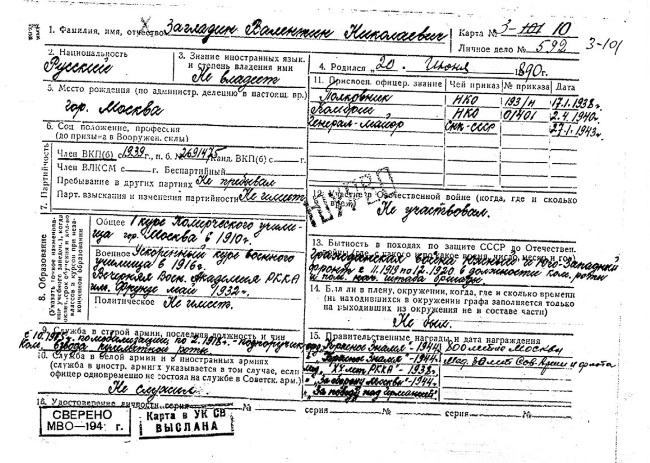 1. Фамилия, имя, отчество Загладин Валентин Николаевич
Карта № 3-101 10
Личное дело № 592
3-101
2. Национальность
Русский
3. Знание иностранных язык. и степень владения ими
Не владеет
4. Родился "20" Июня 1890г.
5. Место рождения (по администр. делению в настоящ. вр.)
гор. Москва
6. Соц положение, профессия
(до призыва в Вооружен. силы)
7. Партийность
Член ВКП(б) 1939 г., п. б. № 2691475 Канд. ВКП(б) с — г.
Член ВЛКСМ с — г. Беспартийный
Пребывание в других партиях Не пребывал
Парт. взыскания и изменения партийности Не имеет
8. Образование
(Указать точное наименова-
ние учебного заведен., когда
Общее 1 курс Комерческого учили-
ща гор. Москва в 1910г.
Военное Ускоренный курс военного
училища в 1916г.
Воен. Академия РККА
им. Фрунзе май 1932г.
Политическое Не имеет.
9. Служба в старой армии, последняя должность и чин
по мобилизации по 2.1918г. Подпоручик
10. Служба в белой армии и в иностранных армиях
(служба в иностр. армиях указывается в том случае, если
офицер одновременно не состоял на службе в Советск. арм.)
Не служил.
11. Присвоен. офицер. звание
Чей приказ
№ приказа
Дата
Полковник НКО 193/н 17.1.1938г.
Комбриг НКО 01401 2.4.1940г.
Генерал-майор СНК-СССР 27.1.1943г.
УМЕР
12. Участие в Отечественной войне (когда, где и сколько
время)
Не участвовал.
13. Бытность в походах по защите СССР до Отечествен.
Гражданская Южный и Юго-Западный
фронты с 11.1919 по 12.1920 в должности ком. роты
и пом. нач. штаба бригады.
14. Был ли в плену, окружении, когда, где и сколько времени
(на находившихся в окружении графа заполняется только
на выходивших из окружения не в составе части)
Не был.
15. Правительственные награды и дата награждения
"Красное Знамя" - 1944г. 800летие Москвы
"Красное Знамя" - 1944г. мед. 30 лет Сов. Армии и флота
мед. "XX лет РККА" - 1938г.
"За оборону Москвы" - 1944г.
"За победу над Германией"
16. Удостоверение личности серия № серия № серия №
СВЕРЕНО
МВО—194 г.
Карта в УК СВ
ВЫСЛАНА